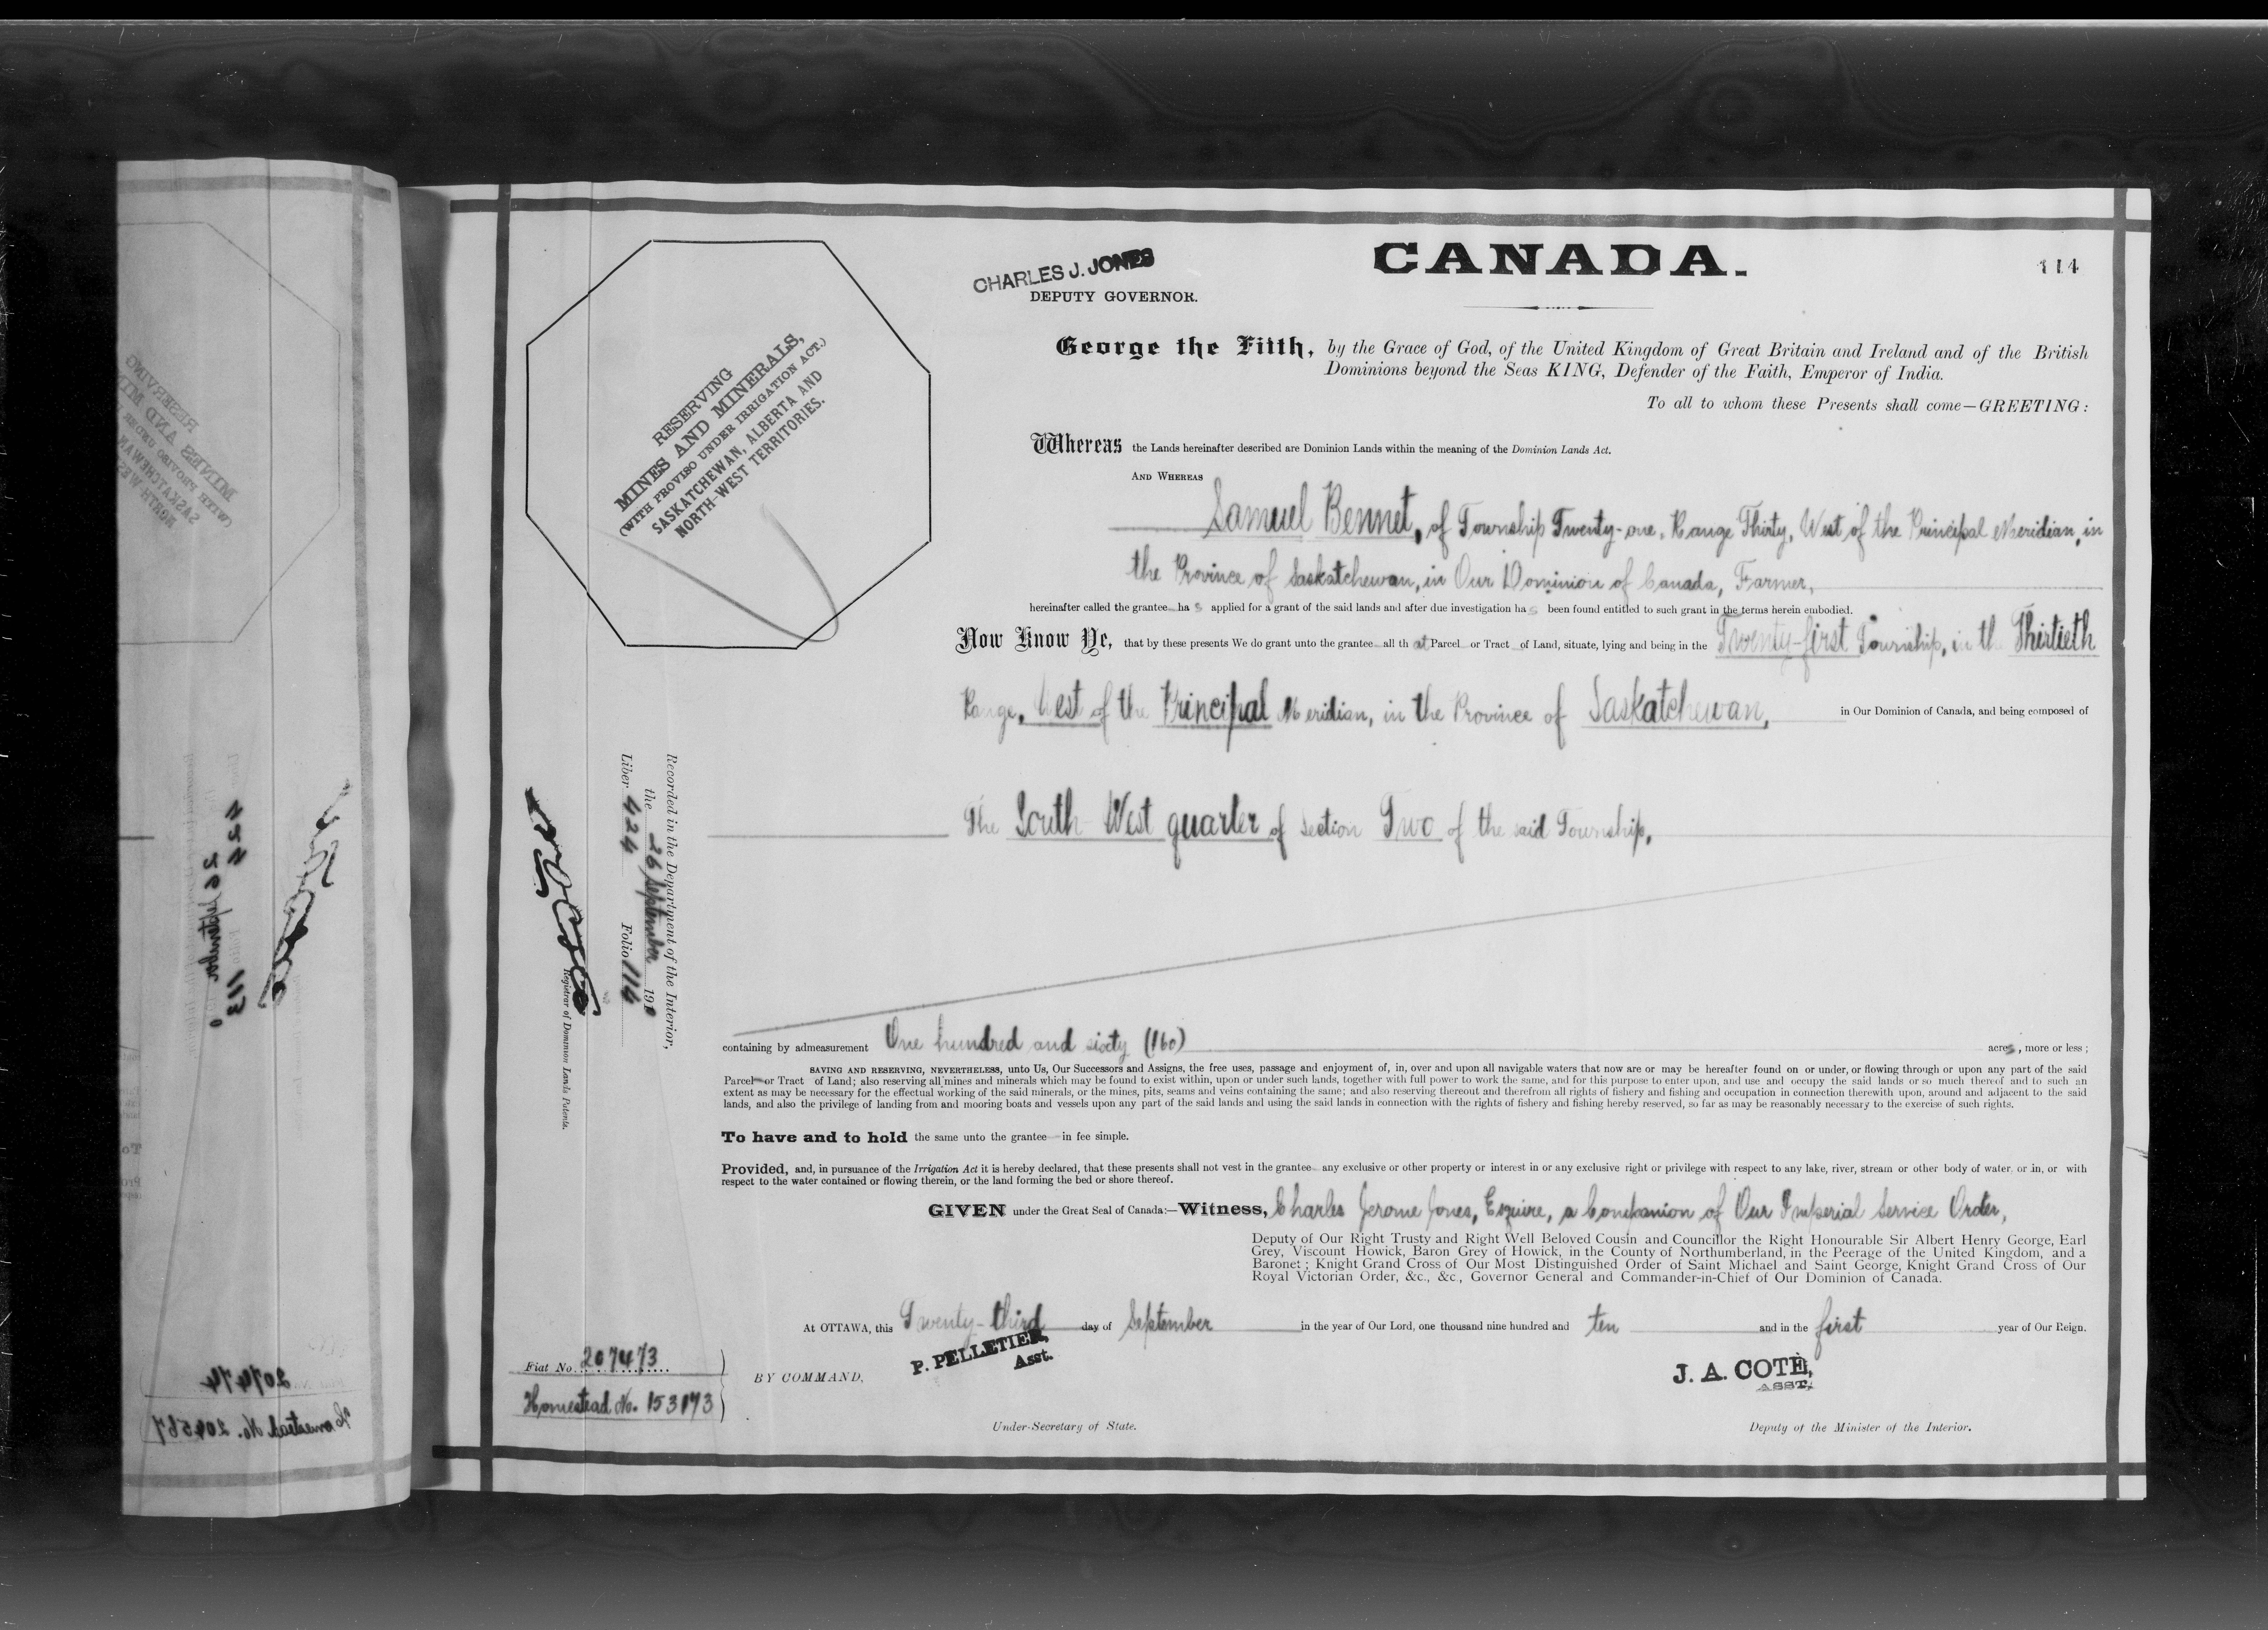 CANADA.
114
CHARLES J. JONES
DEPUTY GOVERNOR.
RESERVING
MINES AND MINERALS,
(WITH PROVISO UNDER IRRIGATION ACT.)
SASKATCHEWAN, ALBERTA AND
NORTH-WEST TERRITORIES.
George the Fifth, by the Grace of God, of the United Kingdom of Great Britain and Ireland and of the British
Dominions beyond the Seas KING, Defender of the Faith, Emperor of India.
To all to whom these Presents shall come—GREETING:
Whereas the Lands hereinafter described are Dominion Lands within the meaning of the Dominion Lands Act.
AND WHEREAS
Samuel Bennet, of Township Twenty-one, Range Thirty, West of the Principal Meridian, in
the Province of Saskatchewan, in Our Dominion of Canada, Farmer,
hereinafter called the grantee has applied for a grant of the said lands and after due investigation has been found entitled to such grant in the terms herein embodied.
Now Know Ye, that by these presents We do grant unto the grantee all that Parcel or Tract of Land, situate, lying and being in the Twenty-first Township, in the Thirtieth
Range, West of the Principal Meridian, in the Province of Saskatchewan, in Our Dominion of Canada, and being composed of
The South West quarter of section Two of the said Township,
containing by admeasurement One hundred and sixty (160) acres, more or less;
SAVING AND RESERVING, NEVERTHELESS, unto Us, Our Successors and Assigns, the free uses, passage and enjoyment of, in, over and upon all navigable waters that now are or may be hereafter found on or under, or flowing through or upon any part of the said
Parcel or Tract of Land; also reserving all mines and minerals which may be found to exist within, upon or under such lands, together with full power to work the same, and for this purpose to enter upon, and use and occupy the said lands or so much thereof and to such an
extent as may be necessary for the effectual working of the said minerals, or the mines, pits, seams and veins containing the same; and also reserving thereout and therefrom all rights of fishery and fishing and occupation in connection therewith upon, around and adjacent to the said
lands, and also the privilege of landing from and mooring boats and vessels upon any part of the said lands and using the said lands in connection with the rights of fishery and fishing hereby reserved, so far as may be reasonably necessary to the exercise of such rights.
To have and to hold the same unto the grantee in fee simple.
Provided, and, in pursuance of the Irrigation Act it is hereby declared, that these presents shall not vest in the grantee any exclusive or other property or interest in or any exclusive right or privilege with respect to any lake, river, stream or other body of water, or in, or with
respect to the water contained or flowing therein, or the land forming the bed or shore thereof.
GIVEN under the Great Seal of Canada:—Witness, Charles Jerome Jones, Esquire, a Companion of Our Imperial Service Order,
Deputy of Our Right Trusty and Right Well Beloved Cousin and Councillor the Right Honourable Sir Albert Henry George, Earl
Grey, Viscount Howick, Baron Grey of Howick, in the County of Northumberland, in the Peerage of the United Kingdom, and a
Baronet; Knight Grand Cross of Our Most Distinguished Order of Saint Michael and Saint George, Knight Grand Cross of Our
Royal Victorian Order, &c., &c., Governor General and Commander-in-Chief of Our Dominion of Canada.
At OTTAWA, this Twenty-third day of September in the year of Our Lord, one thousand nine hundred and ten and in the first year of Our Reign.
BY COMMAND,
P. PELLETIER,
Asst.
Under-Secretary of State.
J. A. COTÉ,
ASST.
Deputy of the Minister of the Interior.
Fiat No. 207473
Homestead No. 153173
Recorded in the Department of the Interior,
the 26 September 1910
Liber 424 Folio 114
Registrar of Dominion Lands Patents.